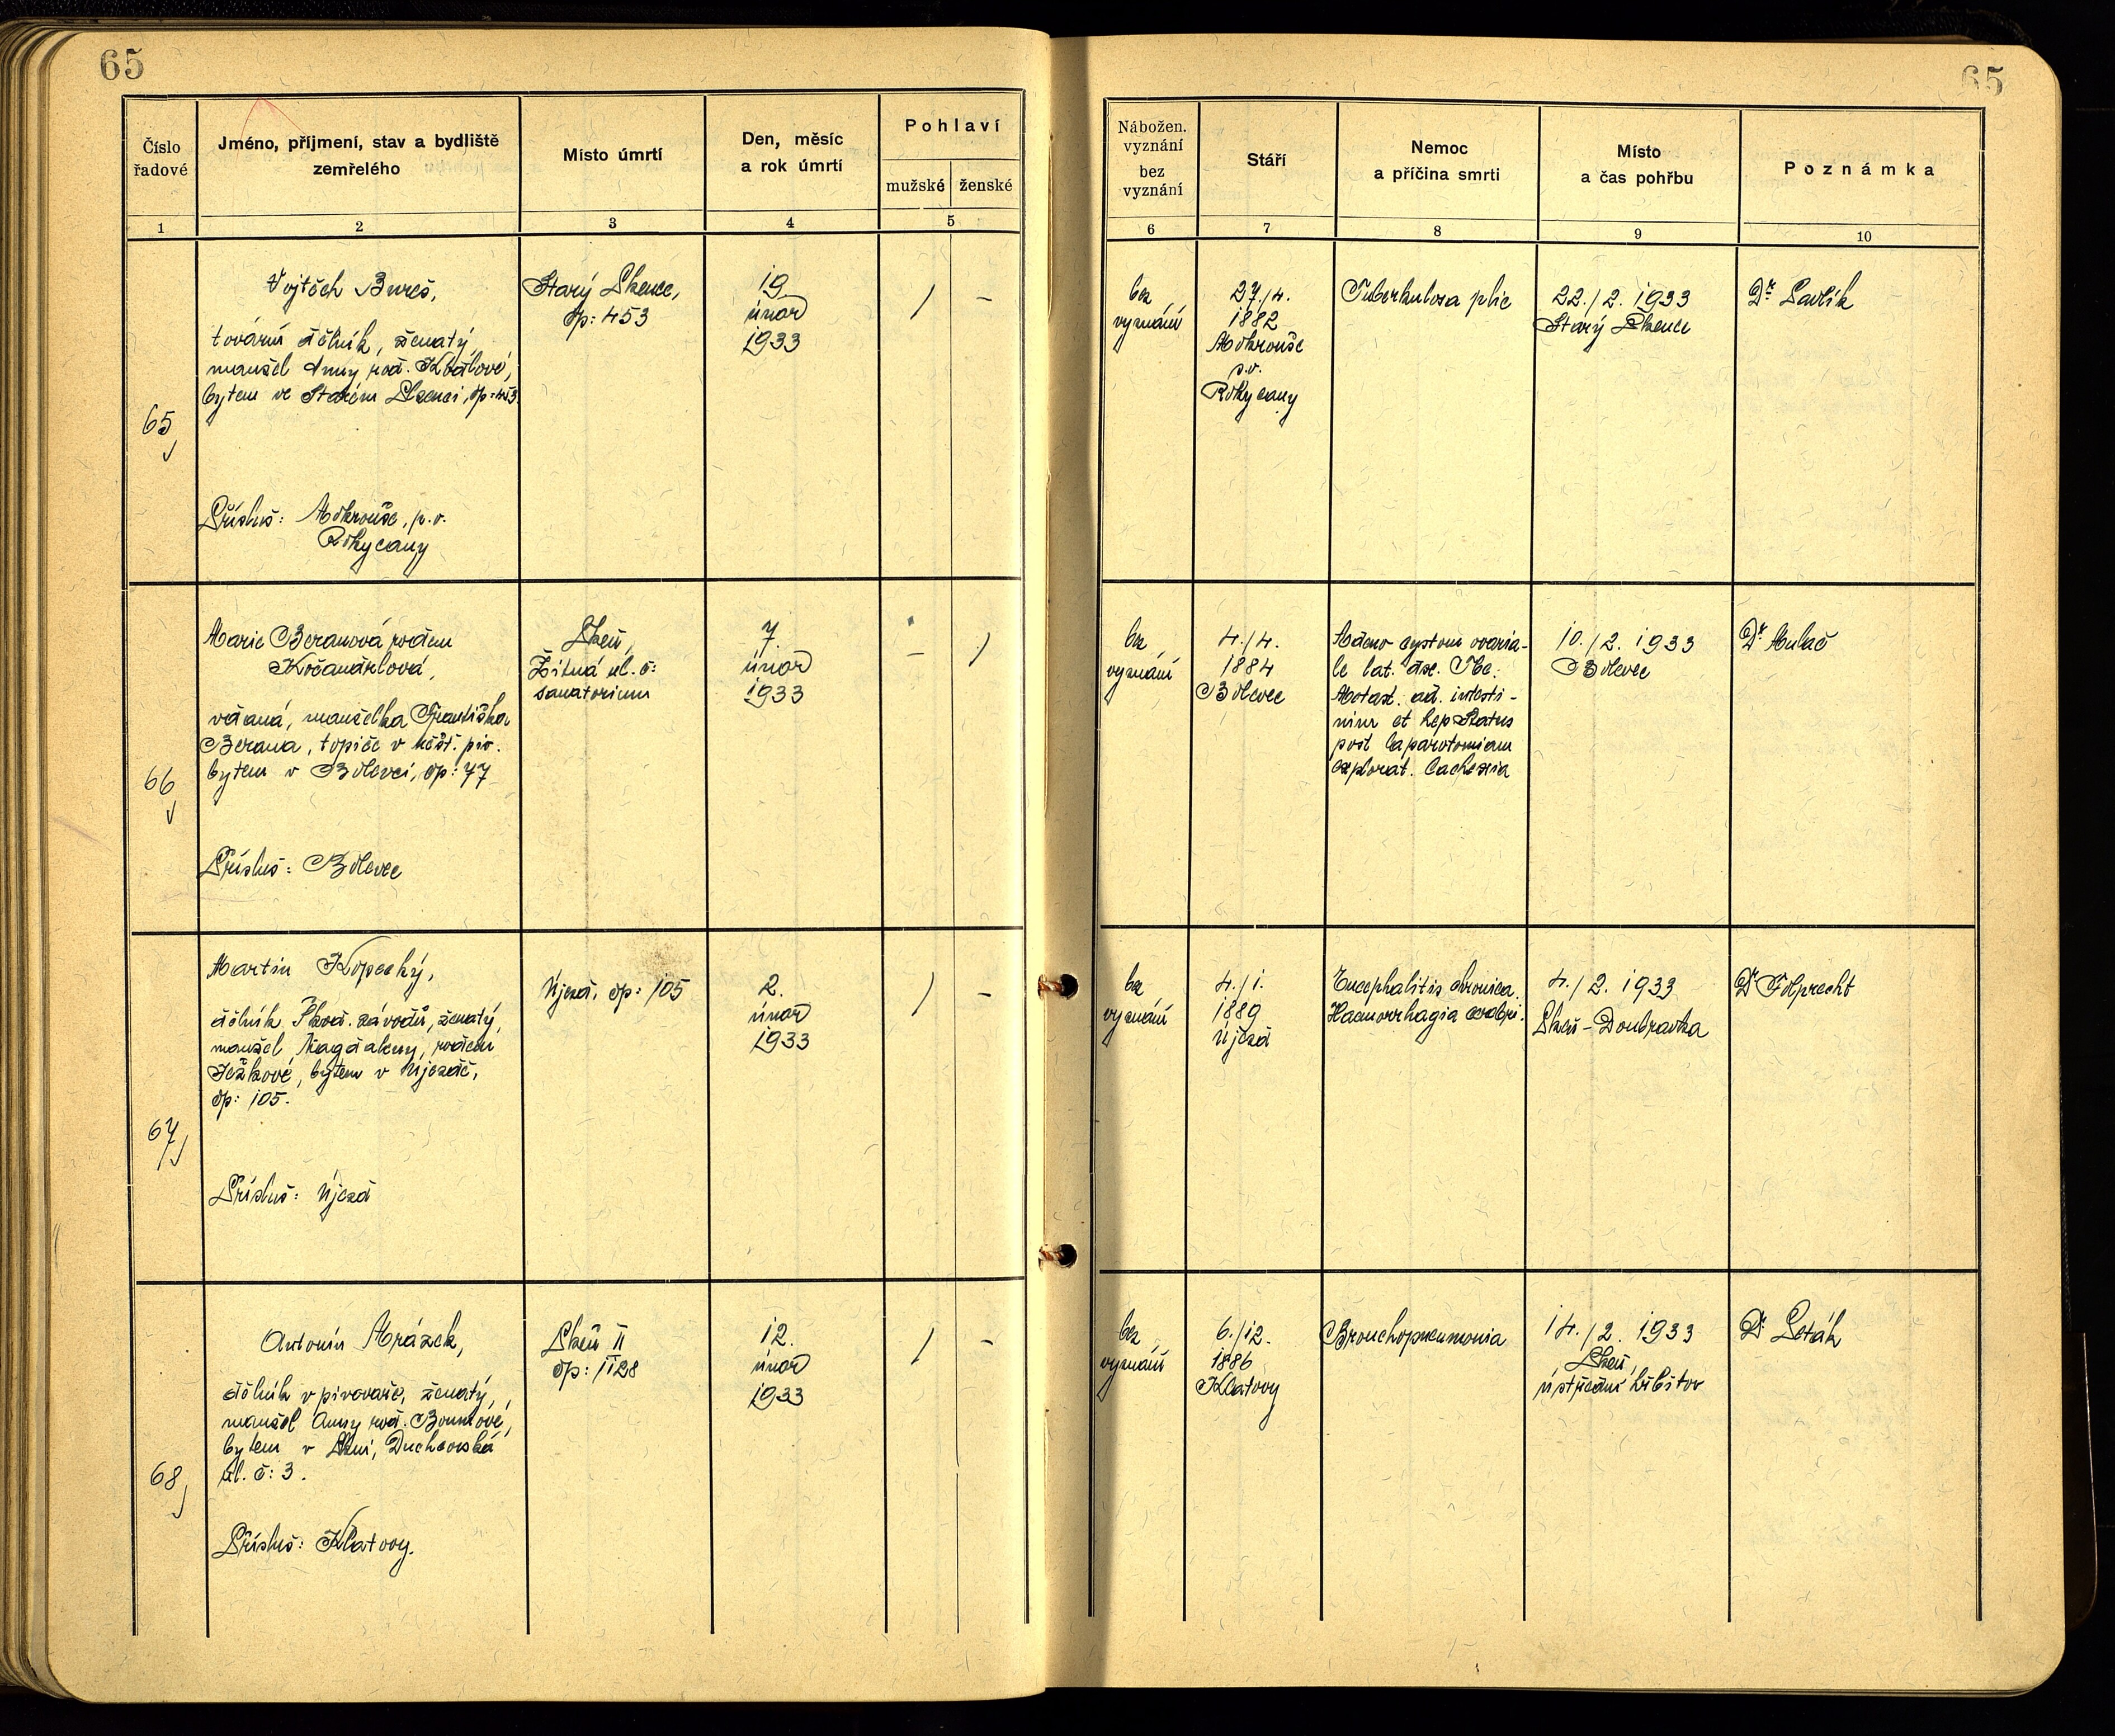 65
65
Číslo řadové
Jméno, příjmení, stav a bydliště
zemřelého
Místo úmrtí
Den, měsíc
a rok úmrtí
Pohlaví
mužské
ženské
1
2
3
4
5
Nábožen.
vyznání
bez
vyznání
Stáří
Nemoc
a příčina smrti
Místo
a čas pohřbu
Poznámka
6
7
8
9
10
65
Vojtěch Bureš,
tovární dělník, ženatý,
manžel Anny roz.
bytem ve Starém Plzenci, čp: 453
Přísluš: Mokrouše, p. o.
Rokycany
Starý Plzenec,
čp: 453
19.
únor
1933
/
–
bez
vyznání
27./4.
1882
Mokrouše
p. o.
Rokycany
Tuberkulosa plic
22./2. 1933
Starý Plzenec
Dr. Pavlík
66
Marie Beranová rodem
Kočandrlová,
vdaná, manželka Františka
Berana, topiče v měšť. piv.
bytem v Bolevci, čp: 77
Přísluš: Bolevec
Plzeň,
Žitná ul. č:
sanatorium
7.
únor
1933
–
/
bez
vyznání
4./4.
1884
Bolevec
Adeno cystom ovaria-
le lat. dx. Tbc.
Metast. ad. intesti-
num et hep Status
post laparotomiam
explorat. Cachexia
10./2. 1933
Bolevec
Dr. Mulač
67
Martin Kopecký,
dělník Škod. závodů, ženatý,
manžel Magdaleny, rodem
Ježkové, bytem v Újezdě,
čp: 105.
Přísluš: Újezd
Újezd, čp: 105
2.
únor
1933
/
–
bez
vyznání
4./1.
1889
Újezd
Encephalitis chronica.
Haemorrhagia cerebri.
4./2. 1933
Plzeň-Doubravka
Dr. Folprecht
68
Antonín Mrázek,
dělník v pivovaře, ženatý,
manžel Anny roz.
bytem v Plzni, Duchcovská
ul. č: 3.
Přísluš: Klatovy.
Plzeň II
čp: 1128
12.
únor
1933
/
–
bez
vyznání
6./12.
1886
Klatovy
Bronchopneumonia
14./2. 1933
Plzeň,
ústřední hřbitov
Dr. Peták